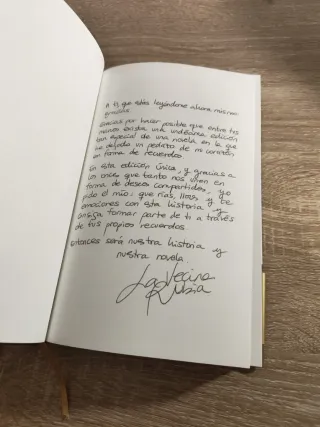 A ti que estás leyéndome ahora mismo:
gracias.
Gracias por hacer posible que entre tus
manos exista una undécima edición
tan especial de una novela en la que
he dejado un pedacito de mi corazón
en forma de recuerdos.
En esta edición única, y gracias a
los onces que tanto nos unen en
forma de deseos compartidos, yo
pido el mío: que rías, llores, y te
emociones con esta historia y
consiga formar parte de ti a través
de tus propios recuerdos.
Entonces será nuestra historia y
nuestra novela.
La Vecina
Rubia